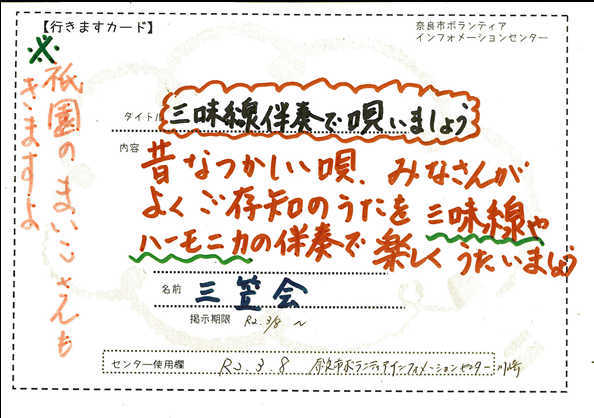 【行きますカード】
奈良市ボランティア
インフォメーションセンター
※祇園のまいこさんも
きますよ
タイトル 三味線伴奏で唄いましょう
内容 昔なつかしい唄、みなさんが
よくご存知のうたを三味線や
ハーモニカの伴奏で楽しくうたいましょう
名前 三笠会
掲示期限 R2.3/8 ～
センター使用欄 R2.3.8 奈良市ボランティアインフォメーションセンター 川崎